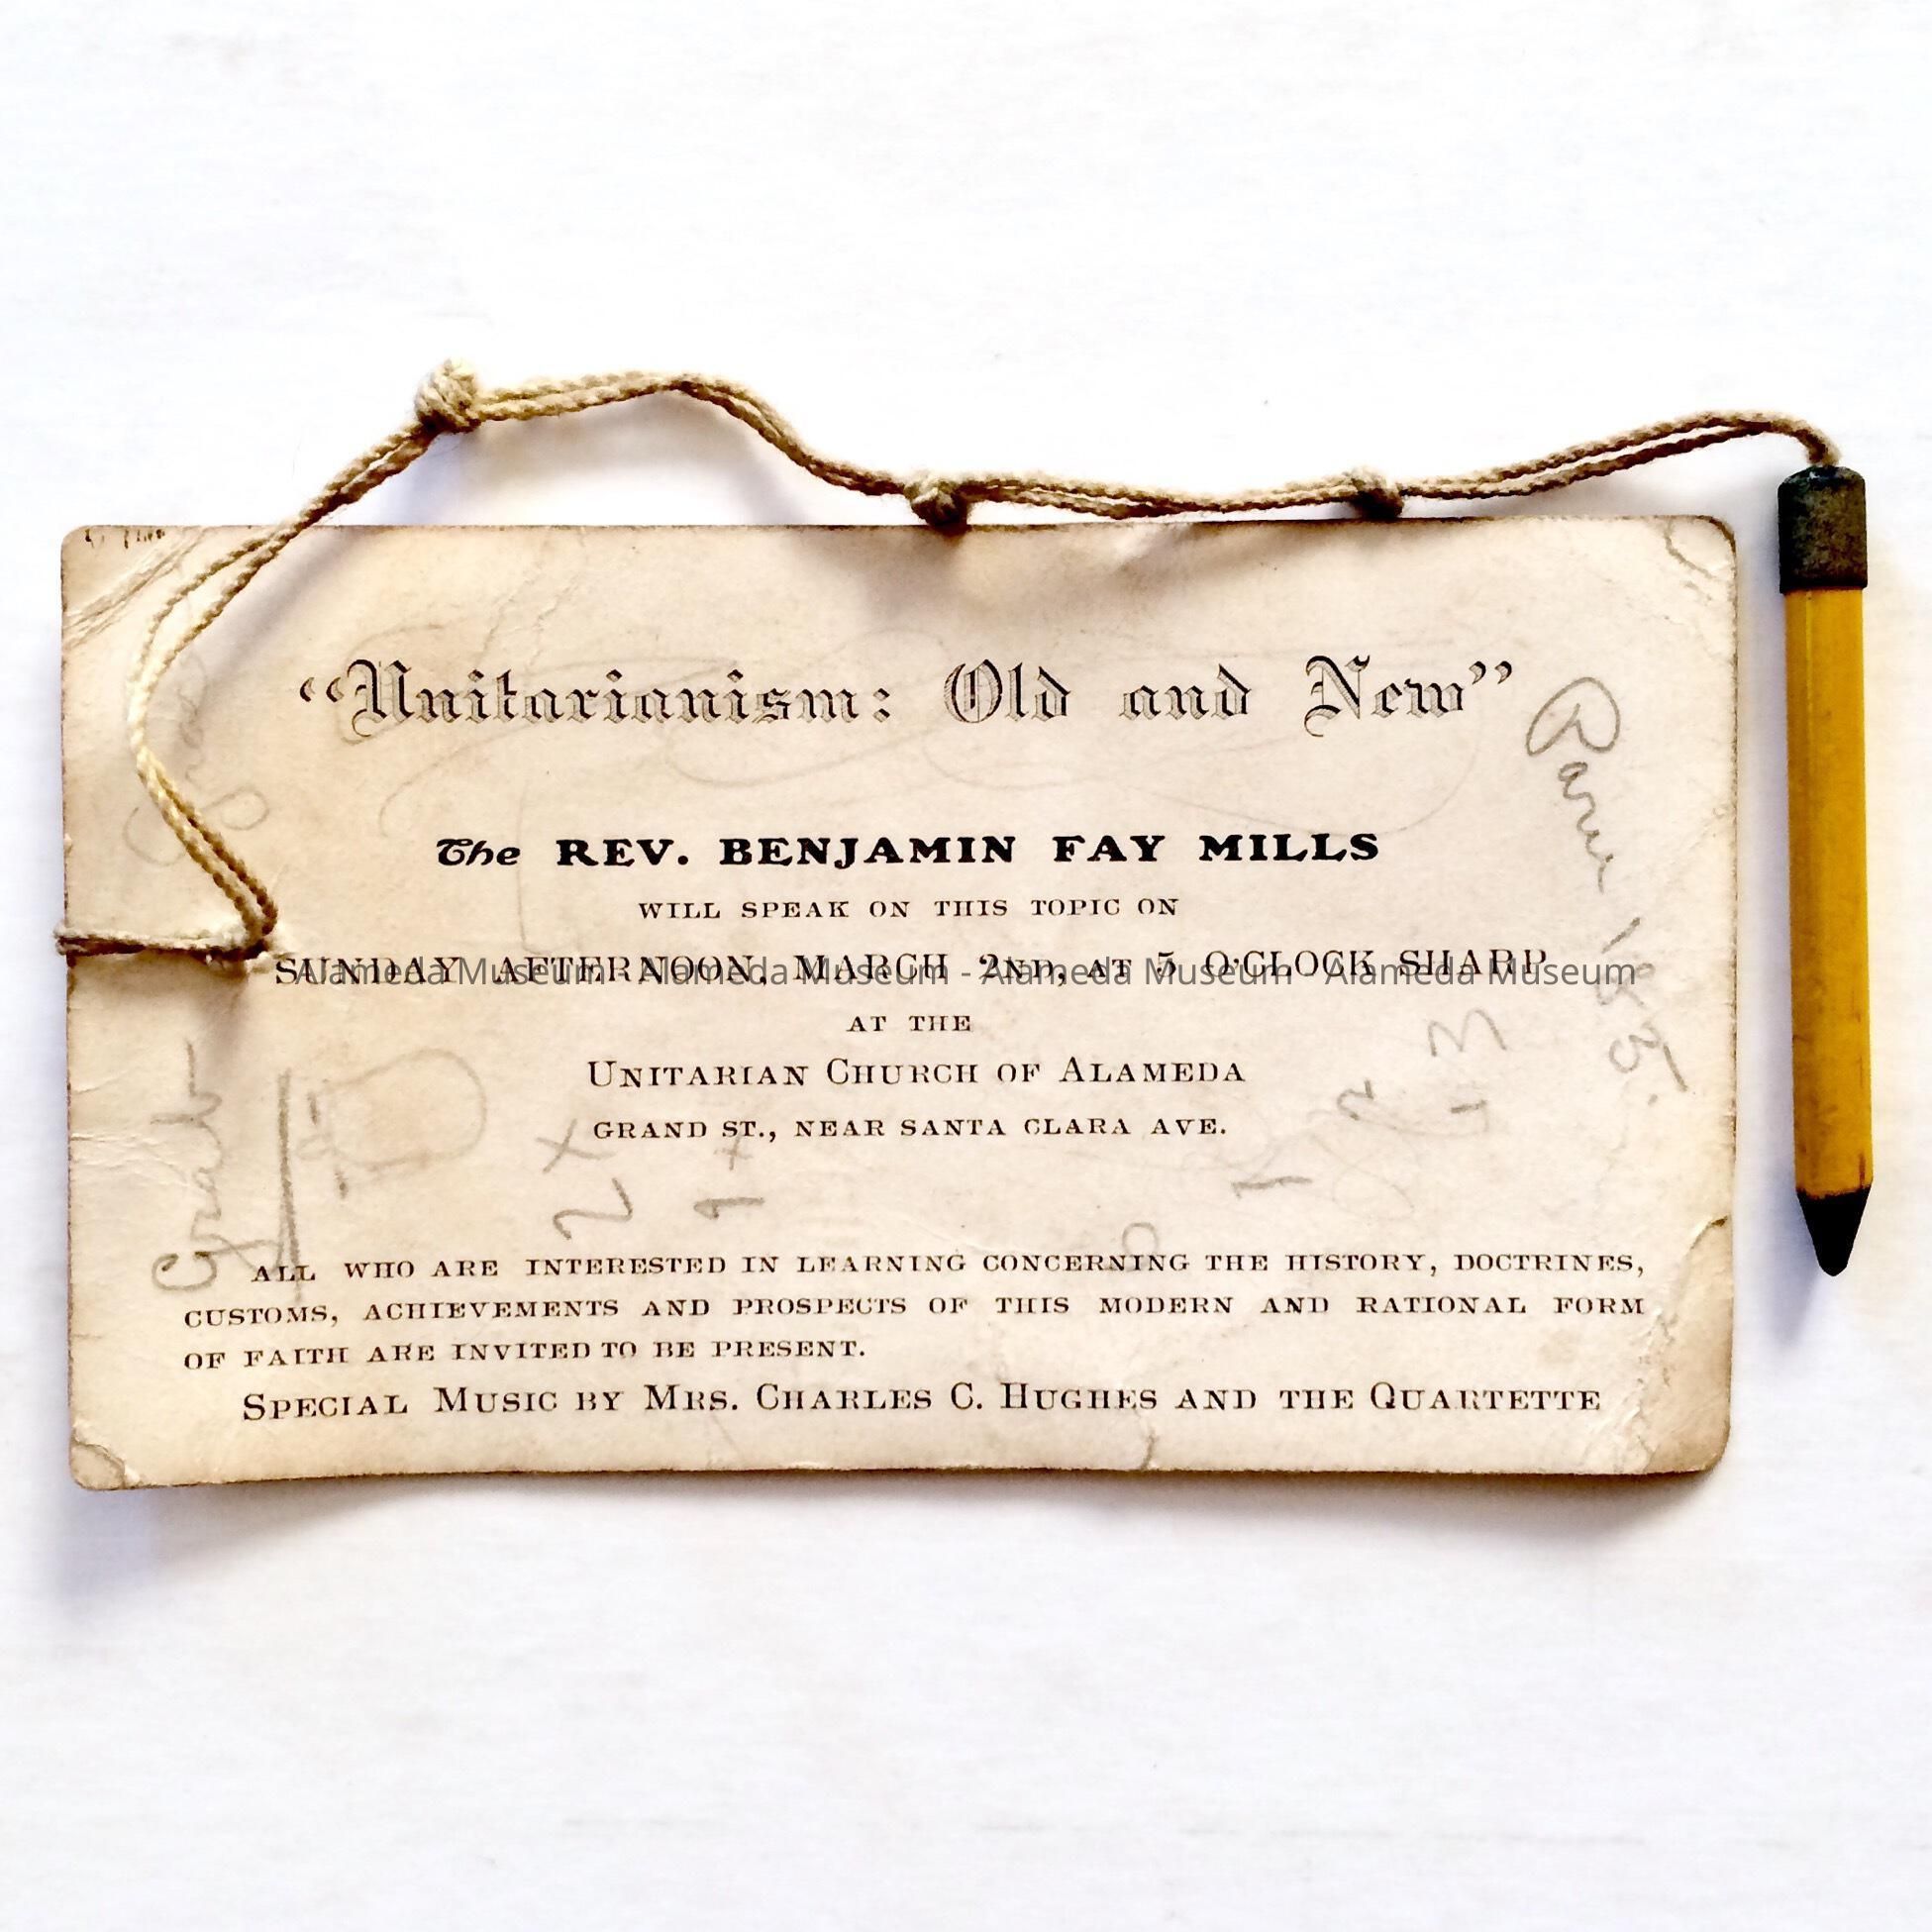 “Unitarianism: Old and New”
The REV. BENJAMIN FAY MILLS
WILL SPEAK ON THIS TOPIC ON
SUNDAY AFTERNOON, MARCH 2ND, AT 5 O'CLOCK SHARP
Alameda Museum - Alameda Museum - Alameda Museum - Alameda Museum
AT THE
UNITARIAN CHURCH OF ALAMEDA
GRAND ST., NEAR SANTA CLARA AVE.
ALL WHO ARE INTERESTED IN LEARNING CONCERNING THE HISTORY, DOCTRINES,
CUSTOMS, ACHIEVEMENTS AND PROSPECTS OF THIS MODERN AND RATIONAL FORM
OF FAITH ARE INVITED TO BE PRESENT.
SPECIAL MUSIC BY MRS. CHARLES C. HUGHES AND THE QUARTETTE